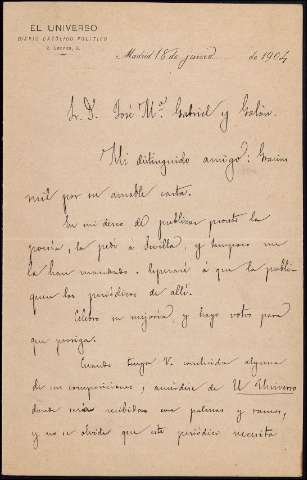 EL UNIVERSO
DIARIO CATÓLICO POLÍTICO
Madrid 18 de junio de 1904
Sr. D. José Mª. Gabriel y Galán.
Mi distinguido amigo: Gracias
mil por su amable carta.
En mi deseo de publicar pronto la
poesía, la pedí a Sevilla, y tampoco me
la han mandado. Esperaré á que la publi-
quen los periódicos de allí.
Celebro su mejoría, y hago votos para
que prosiga.
Cuando tenga V. concluida alguna
de sus composiciones, acuérdese de El Universo
donde será recibida con palmas y ramos,
y no se olvide que este periódico necesita